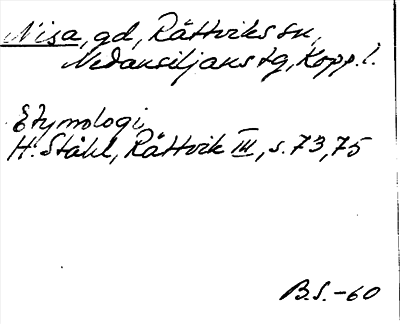 Nisa, gd, Rättviks sn,
Nedansiljans tg, Kopp. l.
Etymologi
H. Ståhl, Rättvik III, s. 73, 75
B.S. -60